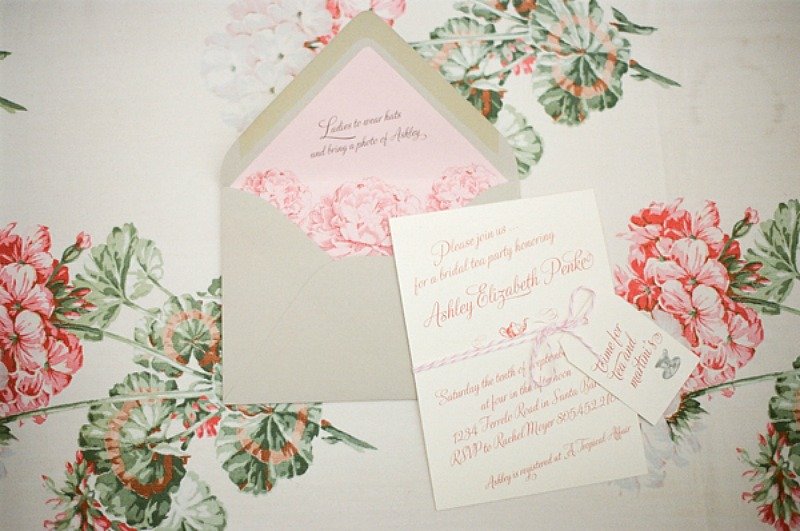 Ladies to wear hats
and bring a photo of Ashley
Please join us ...
for a bridal tea party honoring
Ashley Elizabeth Penko
Saturday the tenth of
at four in the afternoon
1234 Ferrelo Road in Santa
RSVP to Rachel Meyer 805.452.
Ashley is registered at A Tropical Affair
come for
tea and
martini's